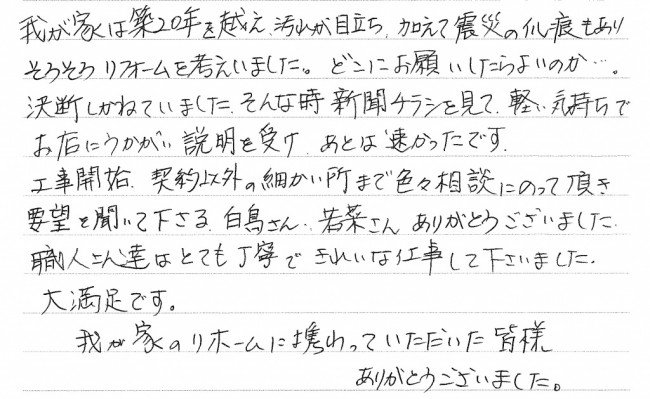 我が家は築20年を越え、汚れが目立ち、加えて震災の爪痕もあり
そろそろリフォームを考えいました。どこにお願いしたらよいのか…。
決断しかねていました、そんな時新聞チラシを見て、軽い気持ちで
お店にうかがい説明を受け、あとは速かったです。
工事開始、契約以外の細かい所まで色々相談にのって頂き
要望を聞いて下さる、白鳥さん、若菜さんありがとうございました。
職人さん達はとても丁寧できれいな仕事して下さいました。
大満足です。
我が家のリホームに携わっていただいた皆様
ありがとうございました。